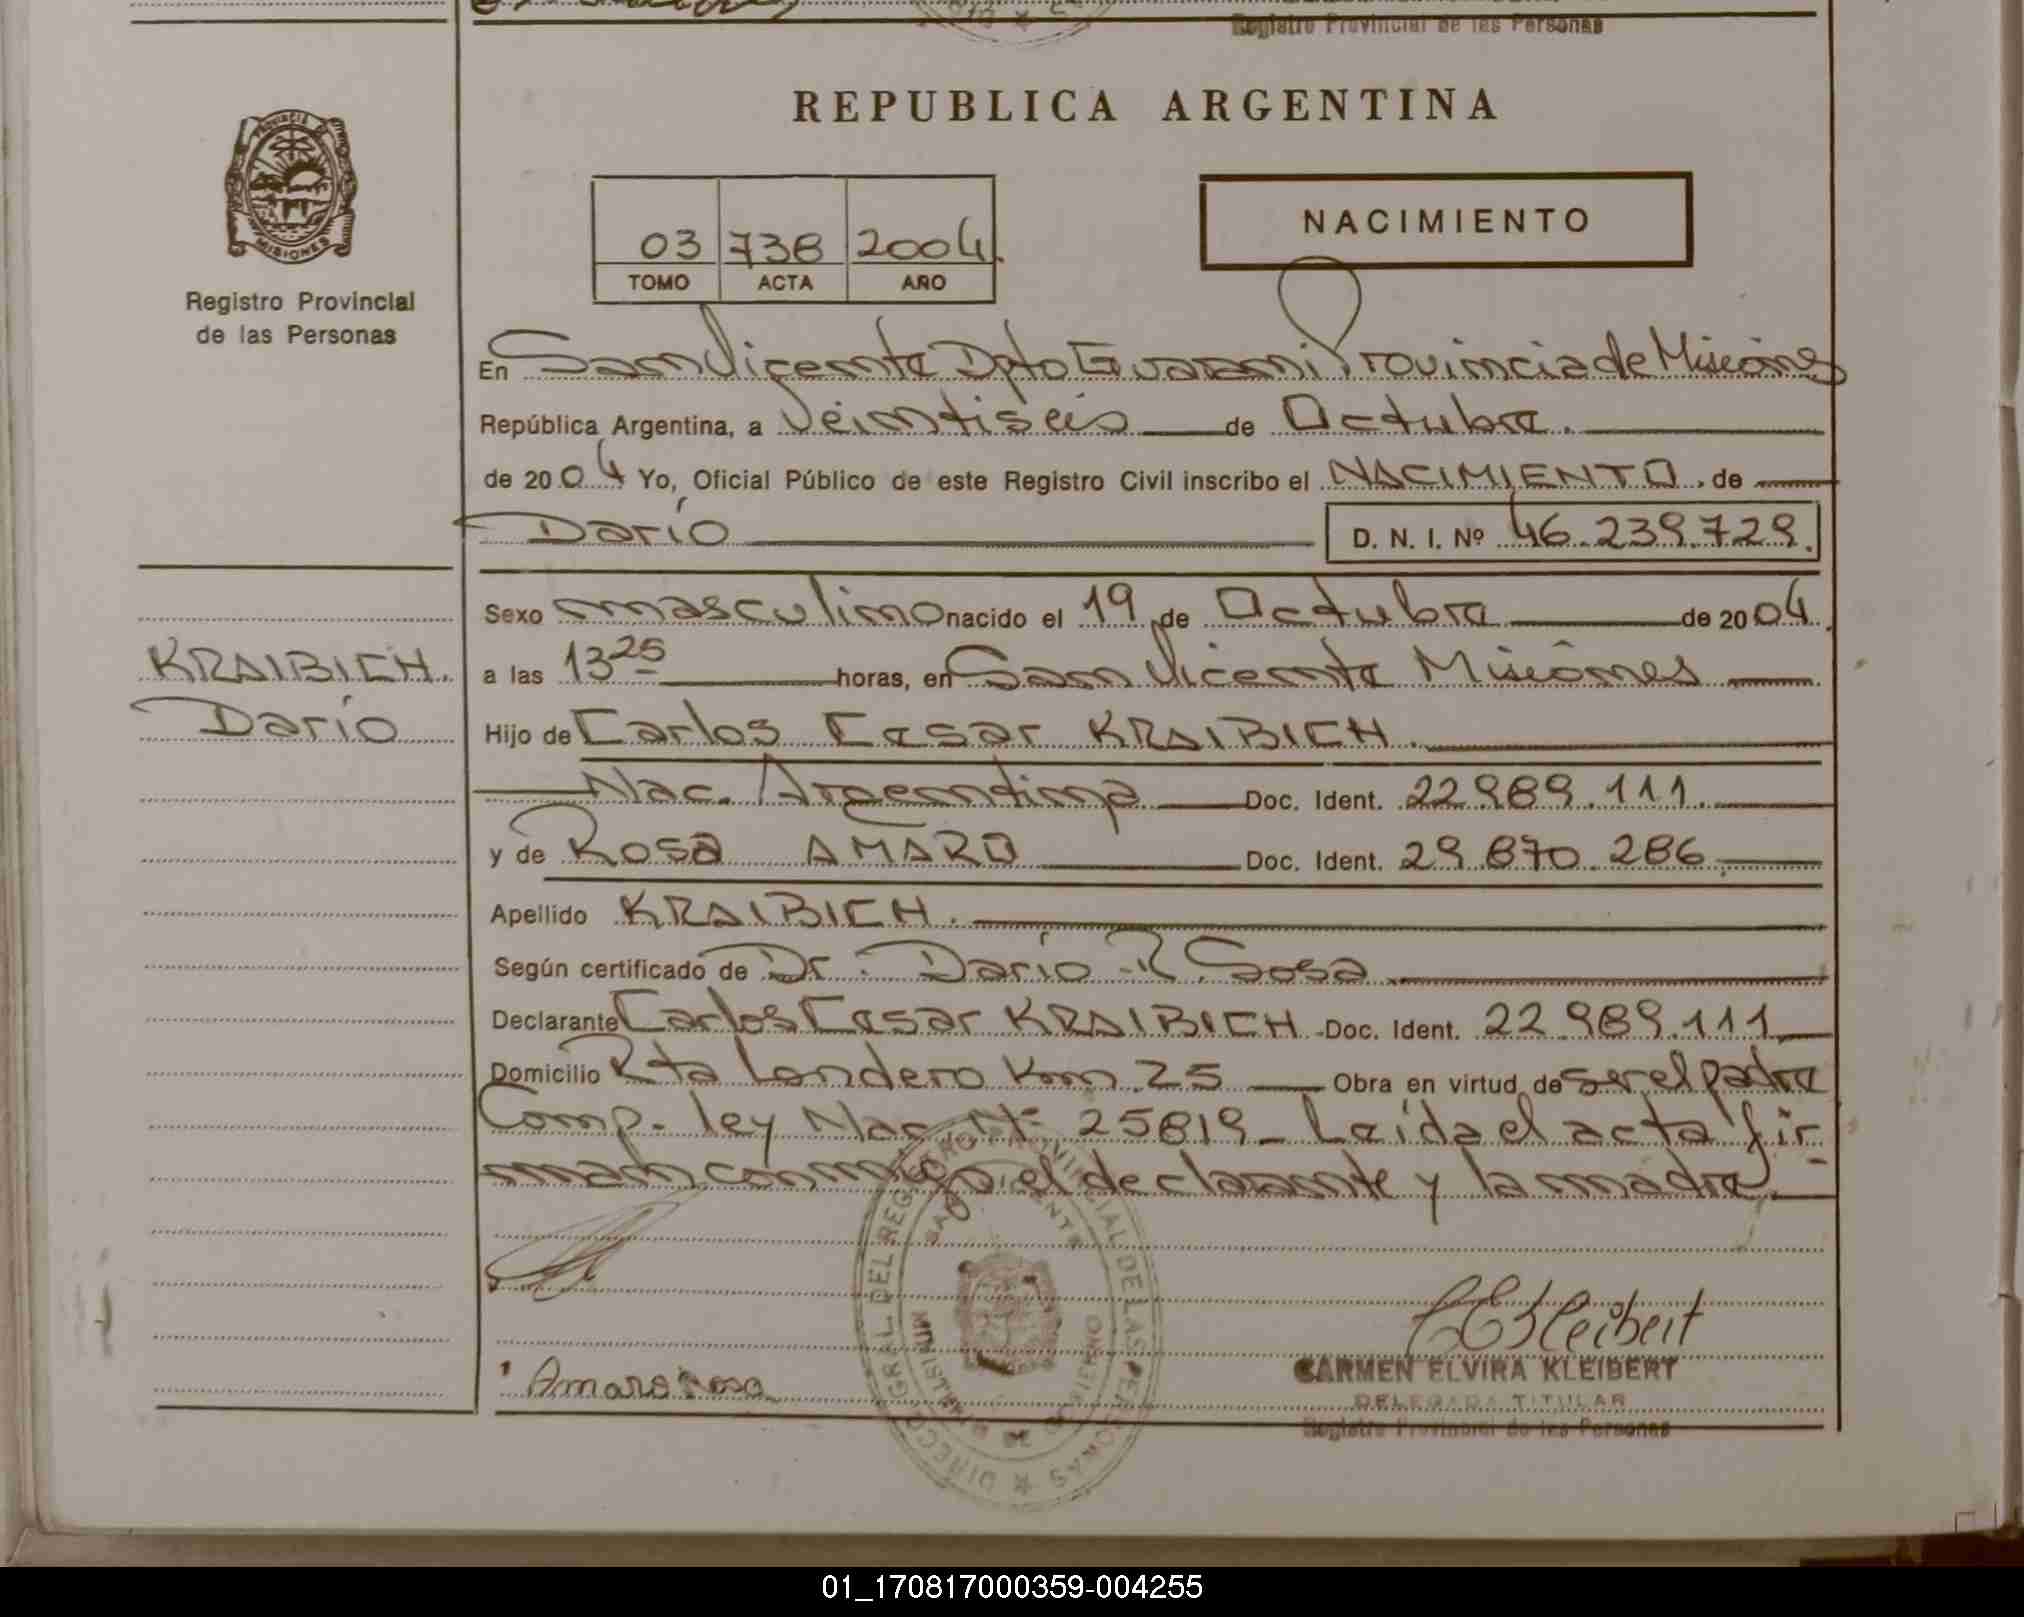 Registro Provincial de las Personas
REPUBLICA ARGENTINA
PROVINCIA DE
MISIONES
Registro Provincial
de las Personas
03 738 2004
TOMO ACTA AÑO
NACIMIENTO
En San Vicente Dpto Guarani Provincia de Misiones
República Argentina, a Veintiseis de Octubre.
de 2004 Yo, Oficial Público de este Registro Civil inscribo el NACIMIENTO. de
Darío D. N. I. Nº 46.239.729.
Sexo masculino nacido el 19 de Octubre de 2004.
KRAIBICH.
Darío
a las 13 25 horas, en San Vicente Misiones
Hijo de Carlos Cesar KRAIBICH.
Nac. Argentina Doc. Ident. 22.989.111.
y de Rosa AMARO Doc. Ident. 29.870.286
Apellido KRAIBICH.
Según certificado de Dr. Darío R. Sosa
Declarante Carlos Cesar KRAIBICH Doc. Ident. 22.989.111
Domicilio Rta Londero Km 25 Obra en virtud de ser el padre
Comp. ley Nac Nº 25819_ Leída el acta fir
man conmigo el declarante y la madre
DIRECC. GRAL. DEL REGISTRO PROVINCIAL DE LAS PERSONAS
SAN VICENTE
Amaro Rosa
CEKleibert
CARMEN ELVIRA KLEIBERT
DELEGADA TITULAR
Registro Provincial de las Personas
01_170817000359-004255